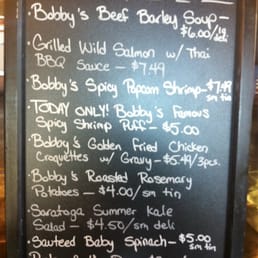 • Bobby's Beef Barley Soup –
$6.00/lg deli
• Grilled Wild Salmon w/ Thai
BBQ Sauce – $7.49
• Bobby's Spicy Popcorn Shrimp – $7.49
sm tin
• TODAY ONLY! Bobby's Famous
Spicy Shrimp Puff – $5.00
• Bobby's Golden Fried Chicken
Croquettes w/ Gravy – $5.49/3pcs.
• Bobby's Roasted Rosemary
Potatoes – $4.00/sm tin
• Saratoga Summer Kale
Salad – $4.50/sm deli
• Sauteed Baby Spinach – $5.00
sm tin